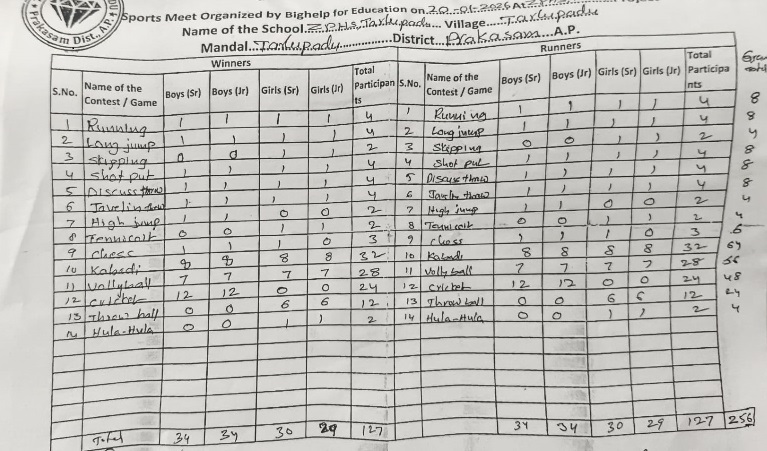 Prakasam Dist., A.P.
Sports Meet Organized by Bighelp for Education on 20-01-2026 At
Name of the School. Z.P.H.S, Tarlupadu Village Tarlupadu
Mandal Tarlupadu District Prakasam A.P.
Winners Runners
S.No. Name of the Contest / Game Boys (Sr) Boys (Jr) Girls (Sr) Girls (Jr) Total Participants S.No. Name of the Contest / Game Boys (Sr) Boys (Jr) Girls (Sr) Girls (Jr) Total Participants
1 Running 1 1 1 1 4 1 Running 1 1 1 1 4 8
2 Long jump 1 1 1 1 4 2 Long jump 1 1 1 1 4 8
3 Skipping 0 0 1 1 2 3 Skipping 0 0 1 1 2 4
4 Shot put 1 1 1 1 4 4 Shot put 1 1 1 1 4 8
5 Discuss throw 1 1 1 1 4 5 Discuss throw 1 1 1 1 4 8
6 Javelin throw 1 1 1 1 4 6 Javelin throw 1 1 1 1 4 8
7 High jump 1 1 0 0 2 7 High jump 1 1 0 0 2 4
8 Tennicoit 0 0 1 1 2 8 Tennicoit 0 0 1 1 2 4
9 Chess 1 1 1 0 3 9 Chess 1 1 1 0 3 6
10 Kabadi 8 8 8 8 32 10 Kabadi 8 8 8 8 32 64
11 Vollyball 7 7 7 7 28 11 Vollyball 7 7 7 7 28 56
12 Cricket 12 12 0 0 24 12 Cricket 12 12 0 0 24 48
13 Throw ball 0 0 6 6 12 13 Throw ball 0 0 6 6 12 24
14 Hula-Hula 0 0 1 1 2 14 Hula-Hula 0 0 1 1 2 4
Total 34 34 30 29 127 34 34 30 29 127 256